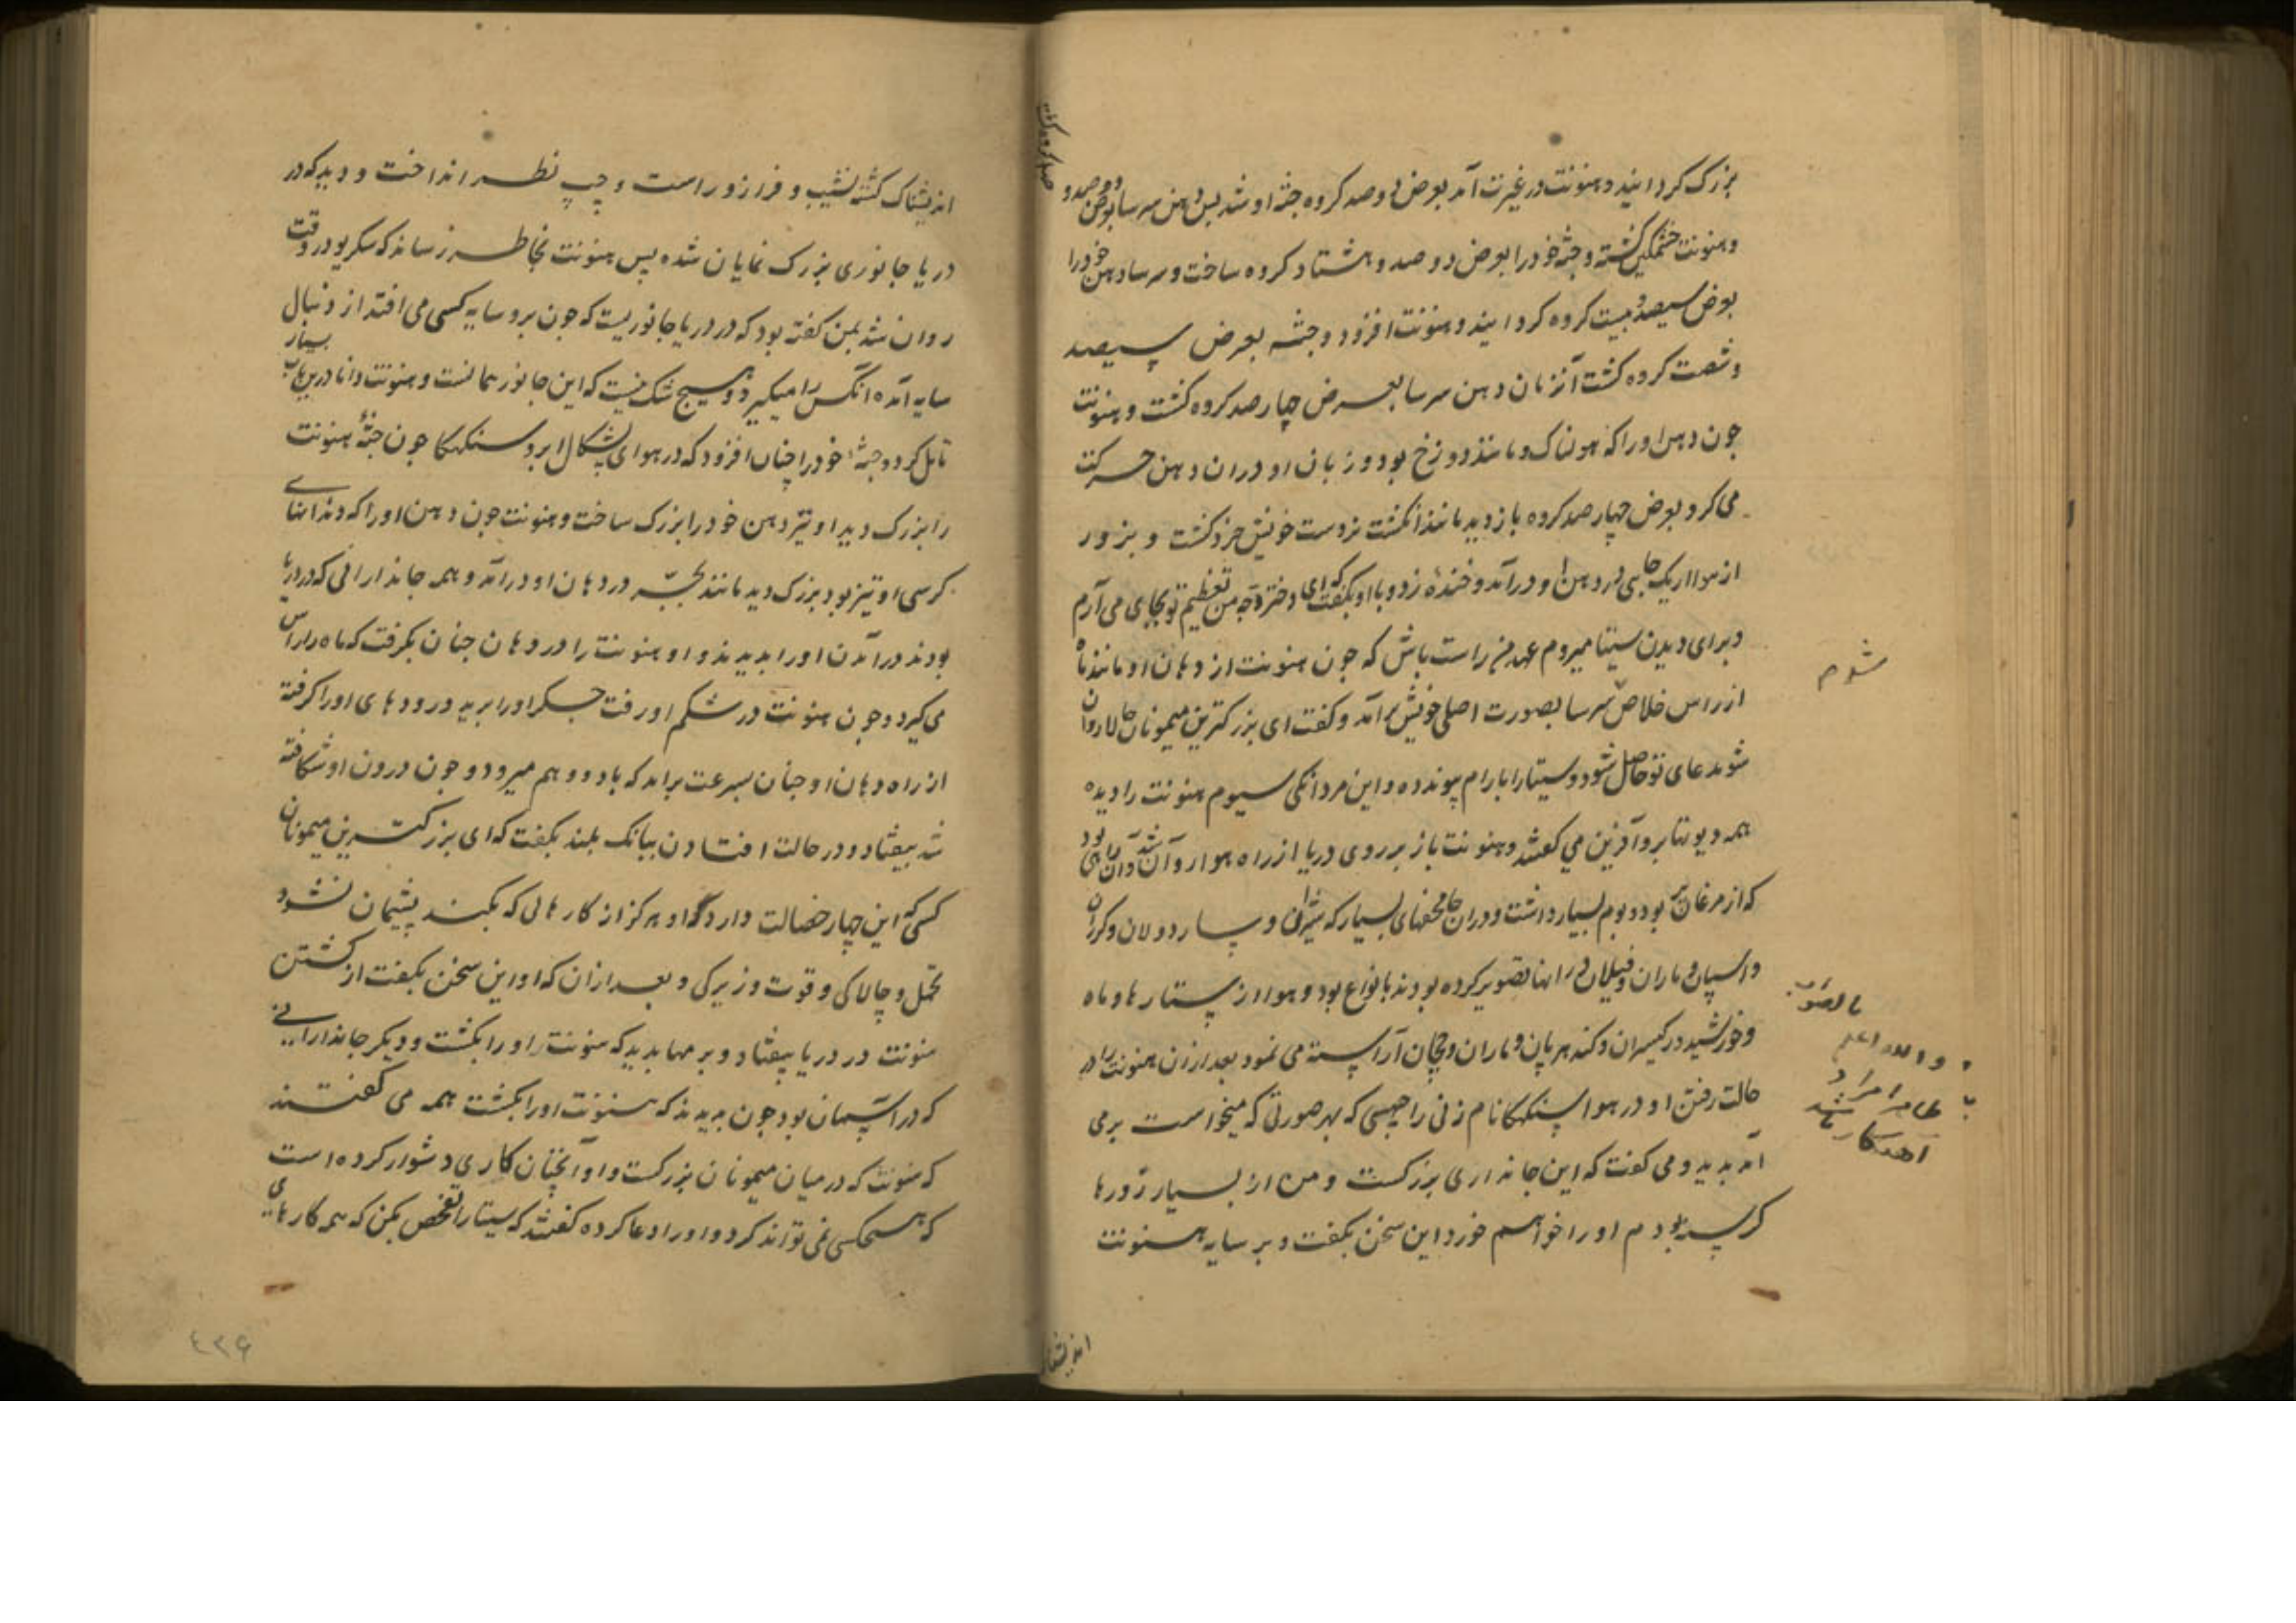 بزرک کردانید و هنونت در غیرت آمد بعرض دو صد کروه جثه او شد پس دهن سرسا بعرض دو صد و
و هنونت خشمکین کشته و جثه خود را بعرض دو صد و هشتاد کروه ساخت و سرسا دهن خود را
بعرض سیصد و بیست کروه کردانید و هنونت افزود و جثه بعرض سیصد
و شصت کروه کشت آنزمان دهن سرسا بعرض چهار صد کروه کشت و هنونت
چون دهن او را که هولناک و مانند دوزخ بود و زبان او دران دهن حرکت
می کرد بعرض چهار صد کروه باز دید مانند انکشت نر دست خویش خرد کشت و بزور
از هوا از یک جانبی در دهن او درآمد و خنده زد و با او بکفت که ای دختر دچه من تعظیم تو بجای می آرم
و برای دیدن سیتا میروم عهد من راست باش که چون هنونت از دهان او مانند ماه
از راس خلاص سرسا بصورت اصلی خویش برآمد و کفت ای بزرکترین میمونان حالا روان
شو مدعای تو حاصل شود و سیتا را با رام پیوند ده و این مردانکی سیوم هنونت را دیده
همه دیوتها برو آفرین می کفتند و هنونت باز بر روی دریا از راه هوا روان شد و آن راهی بود
که از مرغان پر بود و بوم بسیار داشت و دران جا محفهای بسیار که شیران و
و اسپان و ماران و فیلان در انها تصویر کرده بودند بانواع بود و هوا از ستارها و ماه
و خورشید در
حالت رفتن او در هوا سنکهکا نام زنی راچهسی که بهر صورتی که میخواست برمی
آمد بدید و می کفت که این جانداری بزرکست و من از بسیار روزها
کرسنه بودم او را خواهم خورد این سخن بکفت و بر سایه هنونت
شوم
و الله اعلم
اندیشناک
اندیشناک کشته نشیب و فراز و راست و چپ نظر انداخت و دید که در
دریا جانوری بزرک نمایان شده پس هنونت بخاطر رساند که سکریو در وقت
روان شد بمن کفته بود که در دریا جانوریست که چون برو سایه کسی می افتد از دنبال
سایه آمده آنکس را میکیرد و هیچ شک نیست که این جانور همانست و هنونت دانا درین باب بسیار
تامل کرد و جثه خود را چنان افزود که در هوای پشکال ابر و سنکهکا چون جثه هنونت
را بزرک دید او نیز دهن خود را بزرک ساخت و هنونت چون دهن او را که دندانهای
کرسی او تیز بود بزرک دید مانند بجّه در دهان او درآمد و همه جاندارانی که در دریا
بودند درآمدن او را بدیدند و او هنونت را در دهان چنان بکرفت که ماه را راس
می کیرد و چون هنونت در شکم او رفت جکر او را برید و رودهای او را کرفته
از راه دهان او چنان بسرعت برامد که باد و وهم میرود و چون درون او شکافته
شد بیفتاد و در حالت افتادن ببانک بلند بکفت که ای بزرکترین میمونان
کسی که این چهار خصلت دارد او هرکز از کارهائی که بکند پشیمان نشود
تحمّل و چالاکی و قوت و زیرکی و بعد ازان که او این سخن بکفت از کشتن
هنونت در دریا بیفتاد و برمها بدید که هنونت او را بکشت و دیکر جاندارانی
که در آسمان بود چون بدیدند که هنونت او را بکشت همه می کفتند
که هنونت که در میان میمونان بزرکست و او آنچنان کاری دشوار کرده است
که هیچکسی نمی تواند کرد و او را دعا کرده کفتند که سیتا را تفحص بکن که همه کارهای
٤٣٦